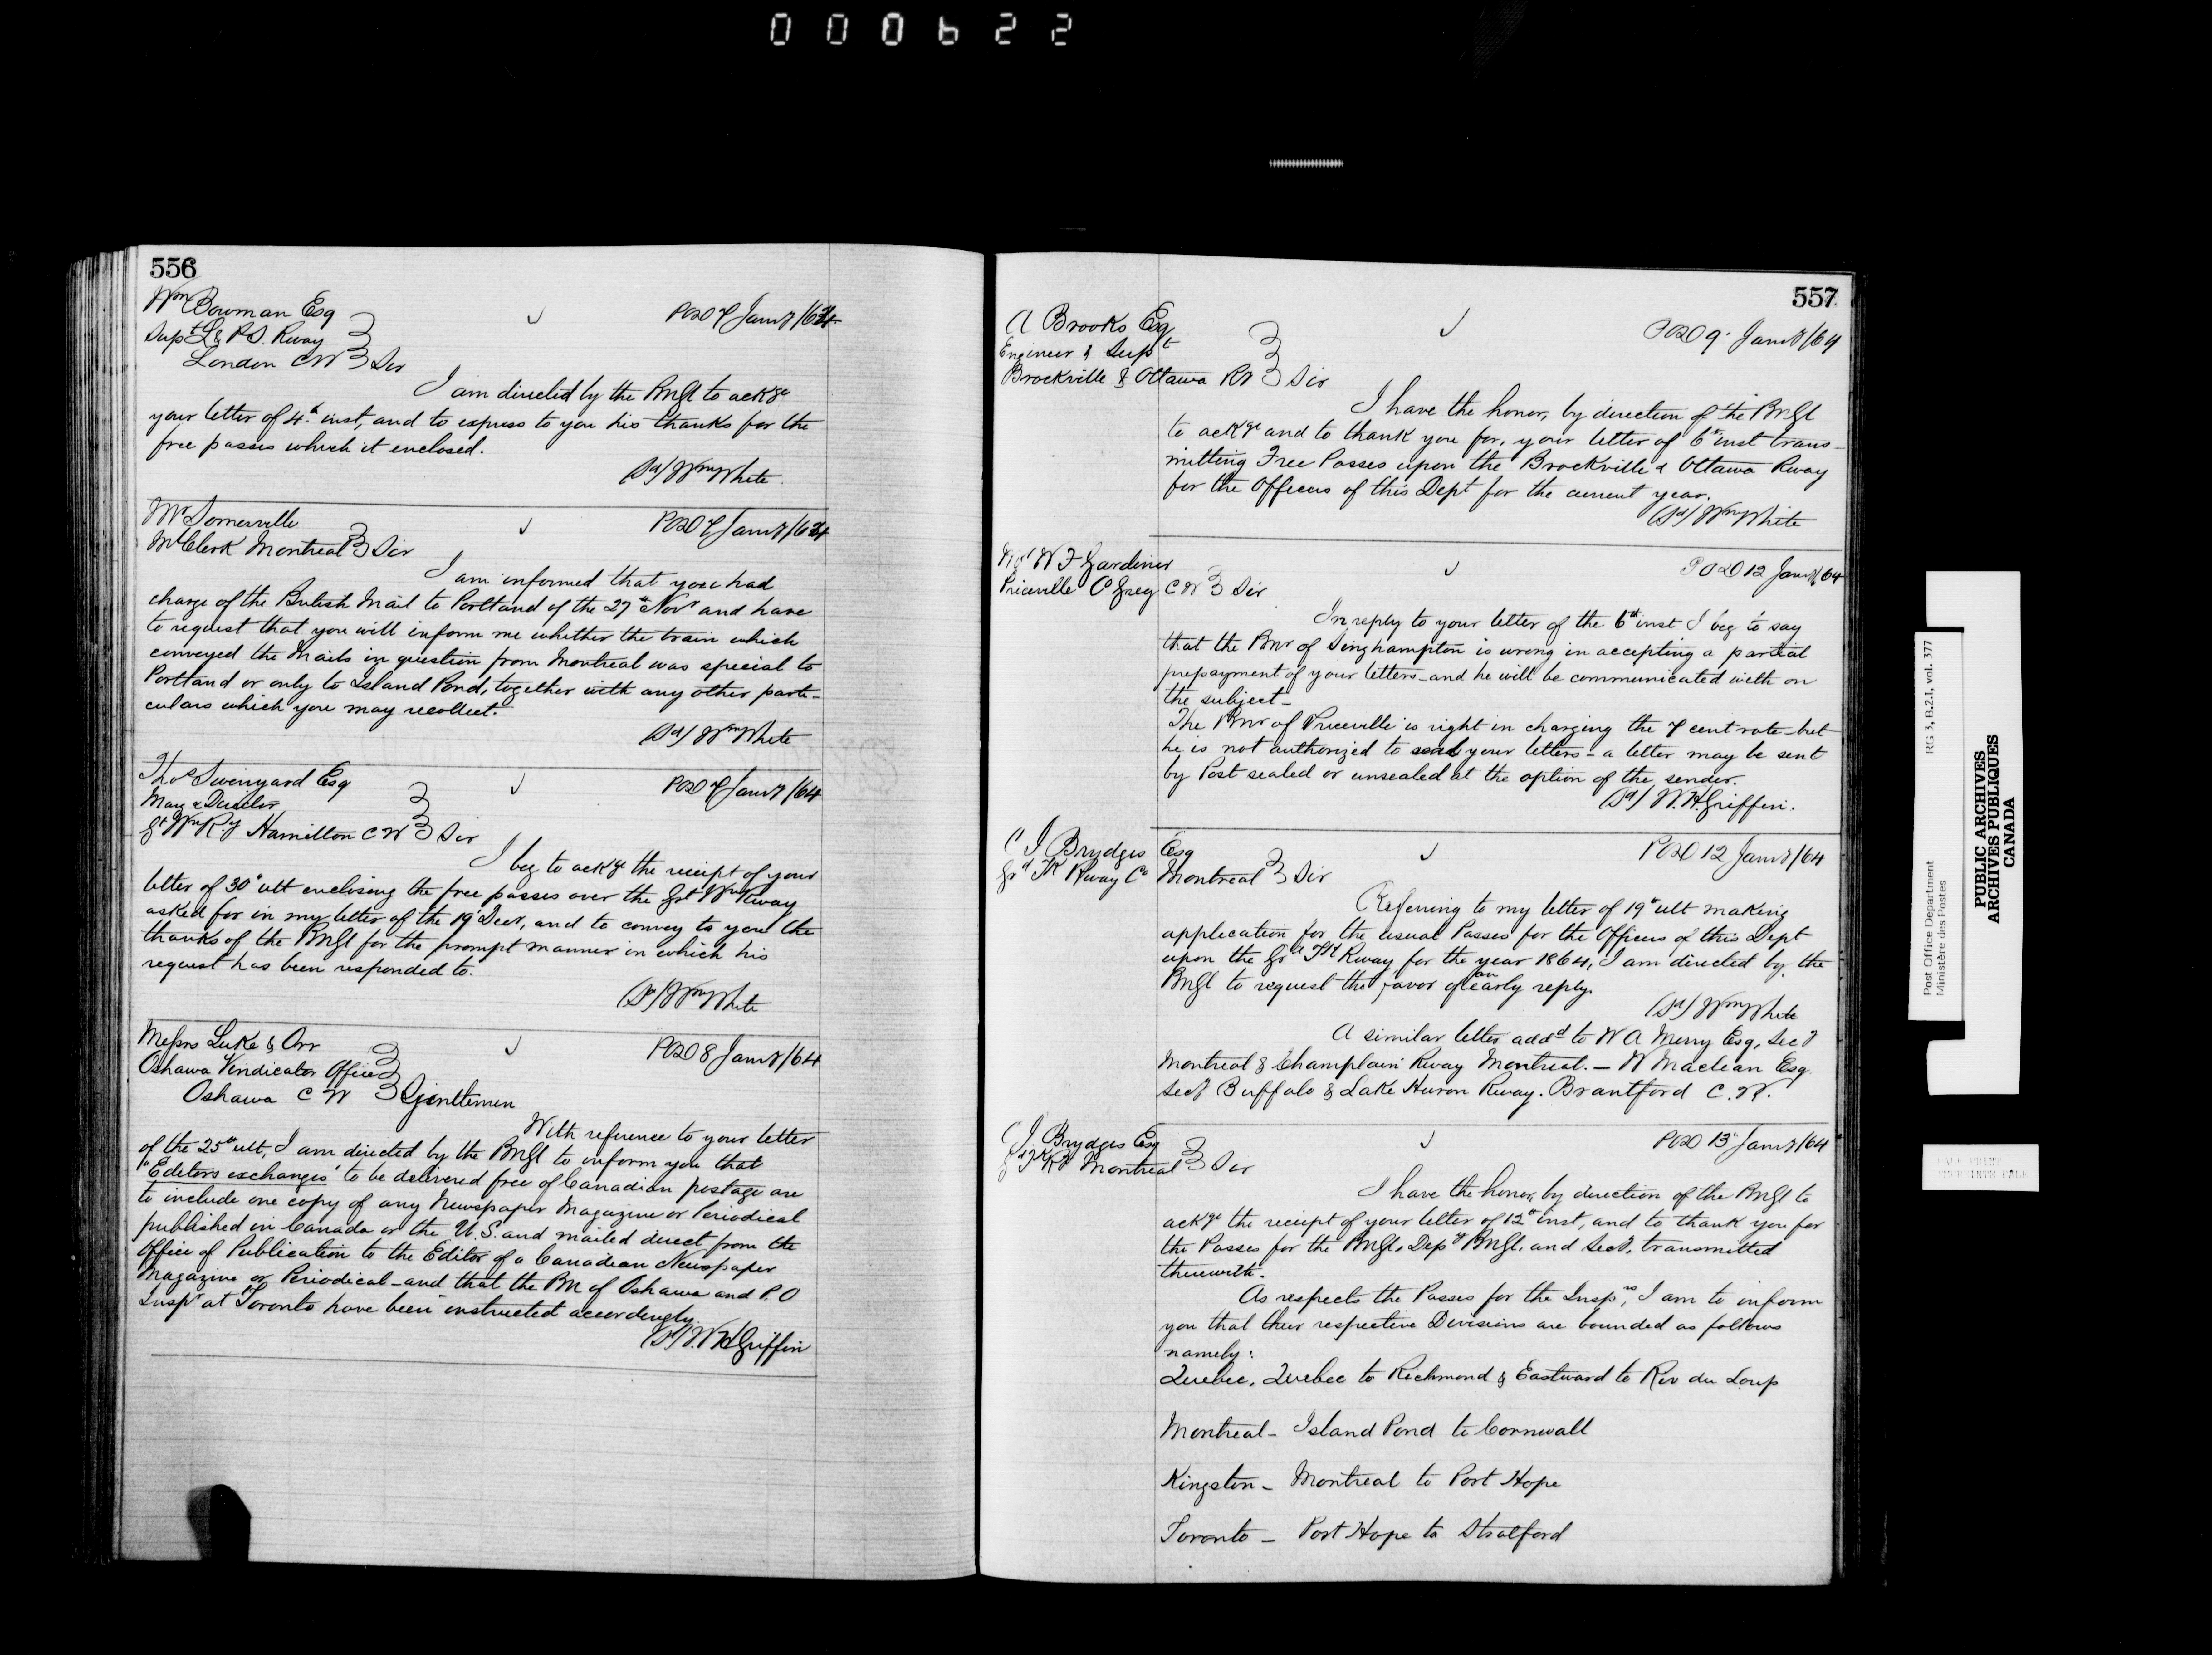 000622
556
Wm Bowman Esq
Supt L & P.S. Rway
London C W Sir
POD 7 Jany/64
I am directed by the PMGl to ackge
your letter of 4th inst, and to express to you his thanks for the
free passes which it enclosed.
(Sd) Wm White
Mr Somerville
M Clerk Montreal Sir
POD 7 Jany/64
I am informed that you had
charge of the British Mail to Portland of the 27th Novr and have
to request that you will inform me whether the train which
conveyed the Mails in question from Montreal was special to
Portland or only to Island Pond, together with any other parti-
culars which you may recollect.
(Sd) Wm White
Thos Swinyard Esq
Mang Director
Gt Wn Ry Hamilton C W Sir
POD 7 Jany/64
I beg to ackge the receipt of your
letter of 30th ult enclosing the free passes over the Gt Wn Rway
asked for in my letter of the 19 Decr, and to convey to you the
thanks of the PMGl for the prompt manner in which his
request has been responded to.
(Sd) Wm White
Messrs Luke & Orr
Oshawa Vindicator Office
Oshawa C W Gentlemen
POD 8 Jany/64
With reference to your letter
of the 25th ult, I am directed by the PMGl to inform you that
"Editors exchanges" to be delivered free of Canadian postage are
to include one copy of any Newspaper Magazine or Periodical
published in Canada or the U.S. and mailed direct from the
Office of Publication to the Editor of a Canadian Newspaper
Magazine or Periodical - and that the PM of Oshawa and P.O
Inspr at Toronto have been instructed accordingly.
(Sd) W H Griffin
557
A Brooks Esq
Engineer & Supt
Brockville & Ottawa RR Sir
POD 9 Jany/64
I have the honor, by direction of the PMGl
to ackge and to thank you for, your letter of 6th inst trans-
mitting Free Passes upon the Brockville & Ottawa Rway
for the Officers of this Dept for the current year.
(Sd) Wm White
W F Gardiner
Priceville Co Grey C W Sir
POD 12 Jany/64
In reply to your letter of the 6th inst I beg to say
that the PMr of Singhampton is wrong in accepting a partial
prepayment of your letters - and he will be communicated with on
the subject -
The PMr of Priceville is right in charging the 7 cent rate - but
he is not authorized to seal your letters - a letter may be sent
by Post sealed or unsealed at the option of the sender.
(Sd) W.H. Griffin.
C J Brydges Esq
Gd Tk Rway Co Montreal Sir
POD 12 Jany/64
Referring to my letter of 19th ult making
application for the usual Passes for the Officers of this Dept
upon the Gd Tk Rway for the year 1864, I am directed by the
PMGl to request the favor of an early reply.
(Sd) Wm White
A similar letter addd to W A Merry Esq, Secy
Montreal & Champlain Rway Montreal. - W Maclean Esq
Secy Buffalo & Lake Huron Rway. Brantford C.W.
C J. Brydges Esq
G T R Montreal Sir
POD 13 Jany/64
I have the honor, by direction of the PMGl to
ackge the receipt of your letter of 12th inst, and to thank you for
the Passes for the PMGl, Depy PMGl. and Secy, transmitted
therewith.
As respects the Passes for the Insprs, I am to inform
you that their respective Divisions are bounded as follows
namely:
Quebec, Quebec to Richmond & Eastward to Riv du Loup
Montreal - Island Pond to Cornwall
Kingston - Montreal to Port Hope
Toronto - Port Hope to Stratford
Post Office Department RG 3, B.2.1, vol. 377
Ministère des Postes
PUBLIC ARCHIVES
ARCHIVES PUBLIQUES
CANADA